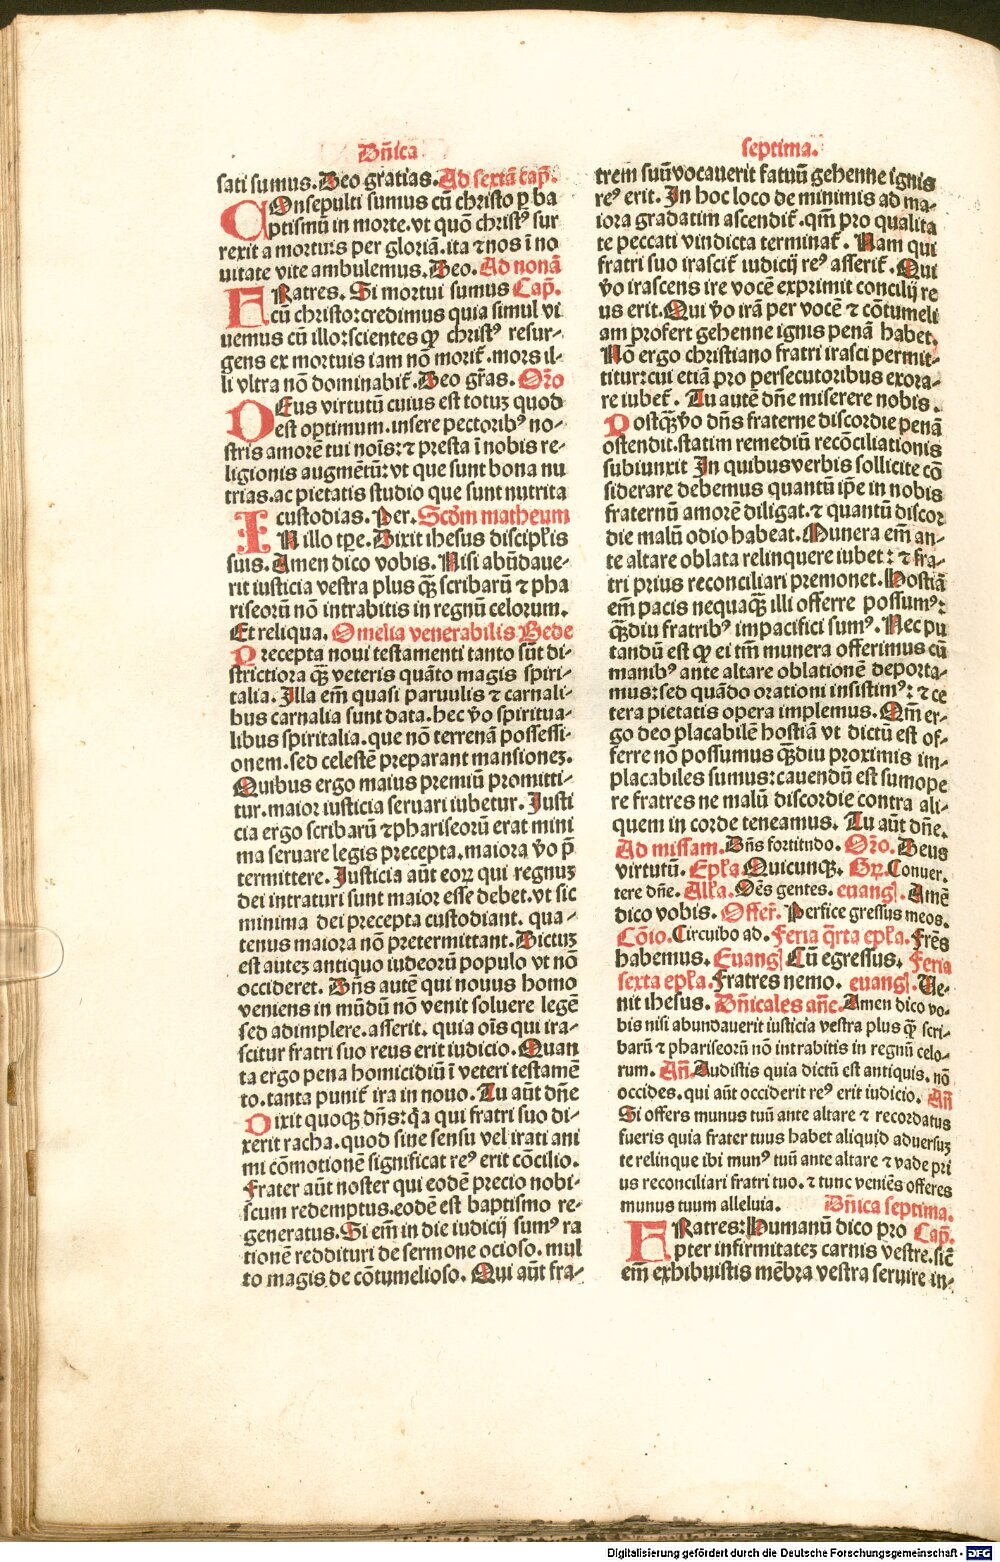 Dñica
sati sumus. Deo gratias. Ad sextã cap̃.
COnsepulti sumus cũ christo ꝑ ba
ptismũ in morte. vt quõ christꝰ sur
rexit a mortuis per gloriã. ita ⁊ nos ĩ no
uitate vite ambulemus. Deo. Ad nonã
FRatres. Si mortui sumus Cap̃.
cũ christo: credimus quia simul vi
uemus cũ illo: scientes ꝙ christꝰ resur⸗
gens ex mortuis iam nõ morit̃. mors il⸗
li vltra nõ dominabit̃. Deo gr̃as. Or̃o
DEus virtutũ cuius est totuʒ quod
est optimum. insere pectoribꝰ no⸗
stris amorẽ tui noĩs: ⁊ presta ĩ nobis re⸗
ligionis augmẽtũ: vt que sunt bona nu
trias. ac pietatis studio que sunt nutrita
custodias. Per. Scd̃m matheum
IN illo tp̃e. Dixit ihesus discipl̃is
suis. Amen dico vobis. Nisi abũdaue⸗
rit iusticia vestra plus q̃ʒ scribarũ ⁊ pha
riseorũ nõ intrabitis in regnũ celorum.
Et reliqua. Omelia venerabilis Bede
Precepta noui testamenti tanto sũt di⸗
strictiora q̃ʒ veteris quãto magis spiri⸗
talia. Illa em̃ quasi paruulis ⁊ carnali⸗
bus carnalia sunt data. hec v̾o spiritua⸗
libus spiritalia. que nõ terrenã possessi⸗
onem. sed celestẽ preparant mansioneʒ.
Quibus ergo maius premiũ promitti⸗
tur. maior iusticia seruari iubetur. Justi
cia ergo scribarũ ⁊ phariseorũ erat mini
ma seruare legis precepta. maiora v̾o p̃
termittere. Justicia aũt eoꝝ qui regnuʒ
dei intraturi sunt maior esse debet. vt sic
minima dei precepta custodiant. qua⸗
tenus maiora nõ pretermittant. Dictuʒ
est auteʒ antiquo iudeorũ populo vt nõ
occideret. Dñs autẽ qui nouus homo
veniens in mũdũ nõ venit soluere legẽ
sed adimplere. asserit. quia oĩs qui ira⸗
scitur fratri suo reus erit iudicio. Quan
ta ergo pena homicidiũ ĩ veteri testamẽ
to. tanta punit̃ ira in nouo. Tu aũt dñe
Dixit quoqʒ dñs: q̃a qui fratri suo di⸗
xerit racha. quod sine sensu vel irati ani
mi cõmotionẽ significat reꝰ erit cõcilio.
Frater aũt noster qui eodẽ precio nobi⸗
scum redemptus. eodẽ est baptismo re⸗
generatus. Si em̃ in die iudicij sumꝰ ra
tionẽ reddituri de sermone ocioso. mul
to magis de cõtumelioso. Qui aũt fra⸗
septima.
trem suũ vocauerit fatuũ gehenne ignis
reꝰ erit. In hoc loco de minimis ad ma⸗
iora gradatim ascendit̃. qm̃ pro qualita
te peccati vindicta terminat̃. Nam qui
fratri suo irascit̃ iudicij reꝰ asserit̃. Qui
v̾o irascens ire vocẽ exprimit concilij re
us erit. Qui v̾o irã per vocẽ ⁊ cõtumeli
am profert gehenne ignis penã habet.
Nõ ergo christiano fratri irasci permit⸗
titur: cui etiã pro persecutoribus exora⸗
re iubet̃. Tu autẽ dñe miserere nobis.
Postq̃ʒ v̾o dñs fraterne discordie penã
ostendit. statim remediũ recõciliationis
subiunxit In quibus verbis sollicite cõ
siderare debemus quantũ ip̃e in nobis
fraternũ amorẽ diligat. ⁊ quantũ discor
die malũ odio habeat. Munera em̃ an⸗
te altare oblata relinquere iubet: ⁊ fra⸗
tri prius reconciliari premonet. Hostiã
em̃ pacis nequaq̃ʒ illi offerre possumꝰ:
q̃ʒdiu fratribꝰ impacifici sumꝰ. Nec pu
tandũ est ꝙ ei tm̃ munera offerimus cũ
manibꝰ ante altare oblationẽ deporta⸗
mus: sed quãdo orationi insistimꝰ: ⁊ ce
tera pietatis opera implemus. Qm̃ er⸗
go deo placabilẽ hostiã vt dictũ est of⸗
ferre nõ possumus q̃ʒdiu proximis im⸗
placabiles sumus: cauendũ est sumope
re fratres ne malũ discordie contra ali⸗
quem in corde teneamus. Tu aũt dñe.
Ad missam. Dñs fortitudo. Or̃o. Deus
virtutũ. Epl̃a. Quicunqʒ. Gꝝ. Conuer⸗
tere dñe. All̃a. Oẽs gentes. euangl̃. Amẽ
dico vobis. Offer̃. Perfice gressus meos.
Cõio. Circuibo ad. Feria q̃rta epl̃a. Fr̃es
habemus. Euangl̃ Cũ egressus. Feria
sexta epl̃a. Fratres nemo. euangl̃. Ve⸗
nit ihesus. Dñicales añe. Amen dico vo⸗
bis nisi abundauerit iusticia vestra plus q̃ʒ scri⸗
barũ ⁊ phariseorũ nõ intrabitis in regnũ celo⸗
rum. Añ. Audistis quia dictũ est antiquis. nõ
occides. qui aũt occiderit reꝰ erit iudicio. Añ
Si offers munus tuũ ante altare ⁊ recordatus
fueris quia frater tuus habet aliquid aduersuʒ
te relinque ibi munꝰ tuũ ante altare ⁊ vade pri
us reconciliari fratri tuo. ⁊ tunc veniẽs offeres
munus tuum alleluia. Dñica septima.
FRatres: Humanũ dico pro Cap̃.
pter infirmitateʒ carnis vestre. sic̃
em̃ exhibuistis mẽbra vestra seruire in⸗
Digitalisierung gefördert durch die Deutsche Forschungsgemeinschaft - DFG